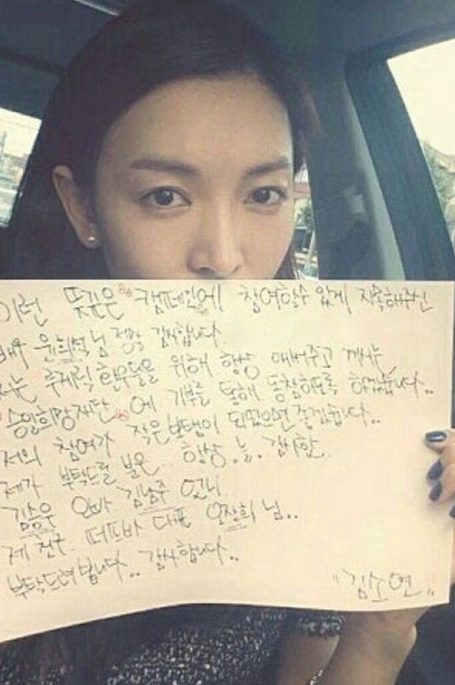 이런 뜻깊은 캠페인에 참여할수 있게 지목해주신
배우 윤희석님 정말 감사합니다.
저는 루게릭 환우들을 위해 항상 애써주고 계시는
승일희망재단에 기부를 통해 동참하도록 하겠습니다..
저의 참여가 작은보탬이 되었으면 좋겠습니다..
제가 부탁드릴 분은.. 항상.늘.감사한..
김승우 오빠 김남주 언니
제 친구 떠뜨바 대표 오장희 님..
부탁드려봅니다.. 감사합니다..
"김소연"